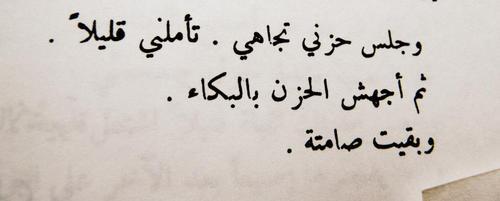 وجلس حزني تجاهي . تأملني قليلاً .
ثم أجهش الحزن بالبكاء .
وبقيت صامتة .